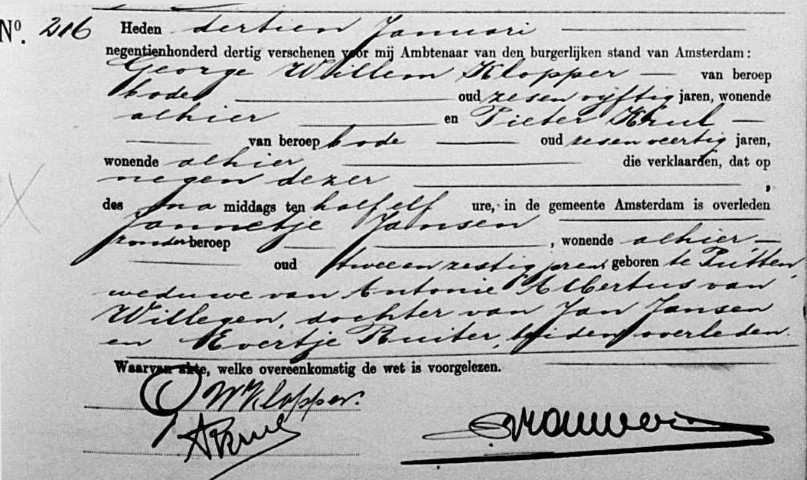 Nº. 216 Heden dertien Januari
negentienhonderd dertig verschenen voor mij Ambtenaar van den burgerlijken stand van Amsterdam:
George Willem Klopper van beroep
bode oud zes en vijftig jaren, wonende
alhier en Pieter Krul
van beroep bode oud zes en veertig jaren,
wonende alhier die verklaarden, dat op
negen dezer,
des na middags ten half elf ure, in de gemeente Amsterdam is overleden
Jannetje Jansen
zonder beroep, wonende alhier
oud twee en zestig jaren geboren te Putten,
weduwe van Antonie Albertus van
Willegen, dochter van Jan Jansen
en Evertje Ruiter, beiden overleden.
Waarvan akte, welke overeenkomstig de wet is voorgelezen.
GWKlopper.
PKrul